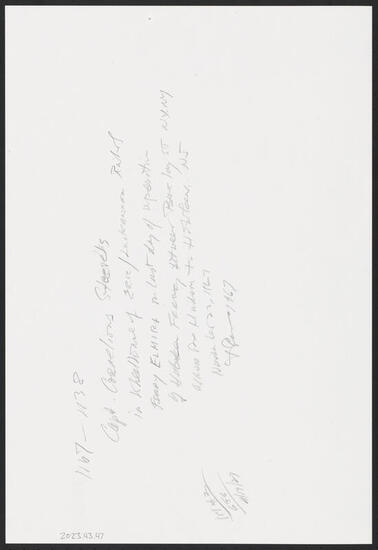 1167-1138
Capt. Cornelius Steevens
in wheelhouse of Erie/Lackawanna Railrd
Ferry ELMIRA on last day of operation
of Hoboken Ferry between Barclay ST NY NY
across the Hudson to Hoboken, NJ
November 22, 1967
1967
2023.43.47